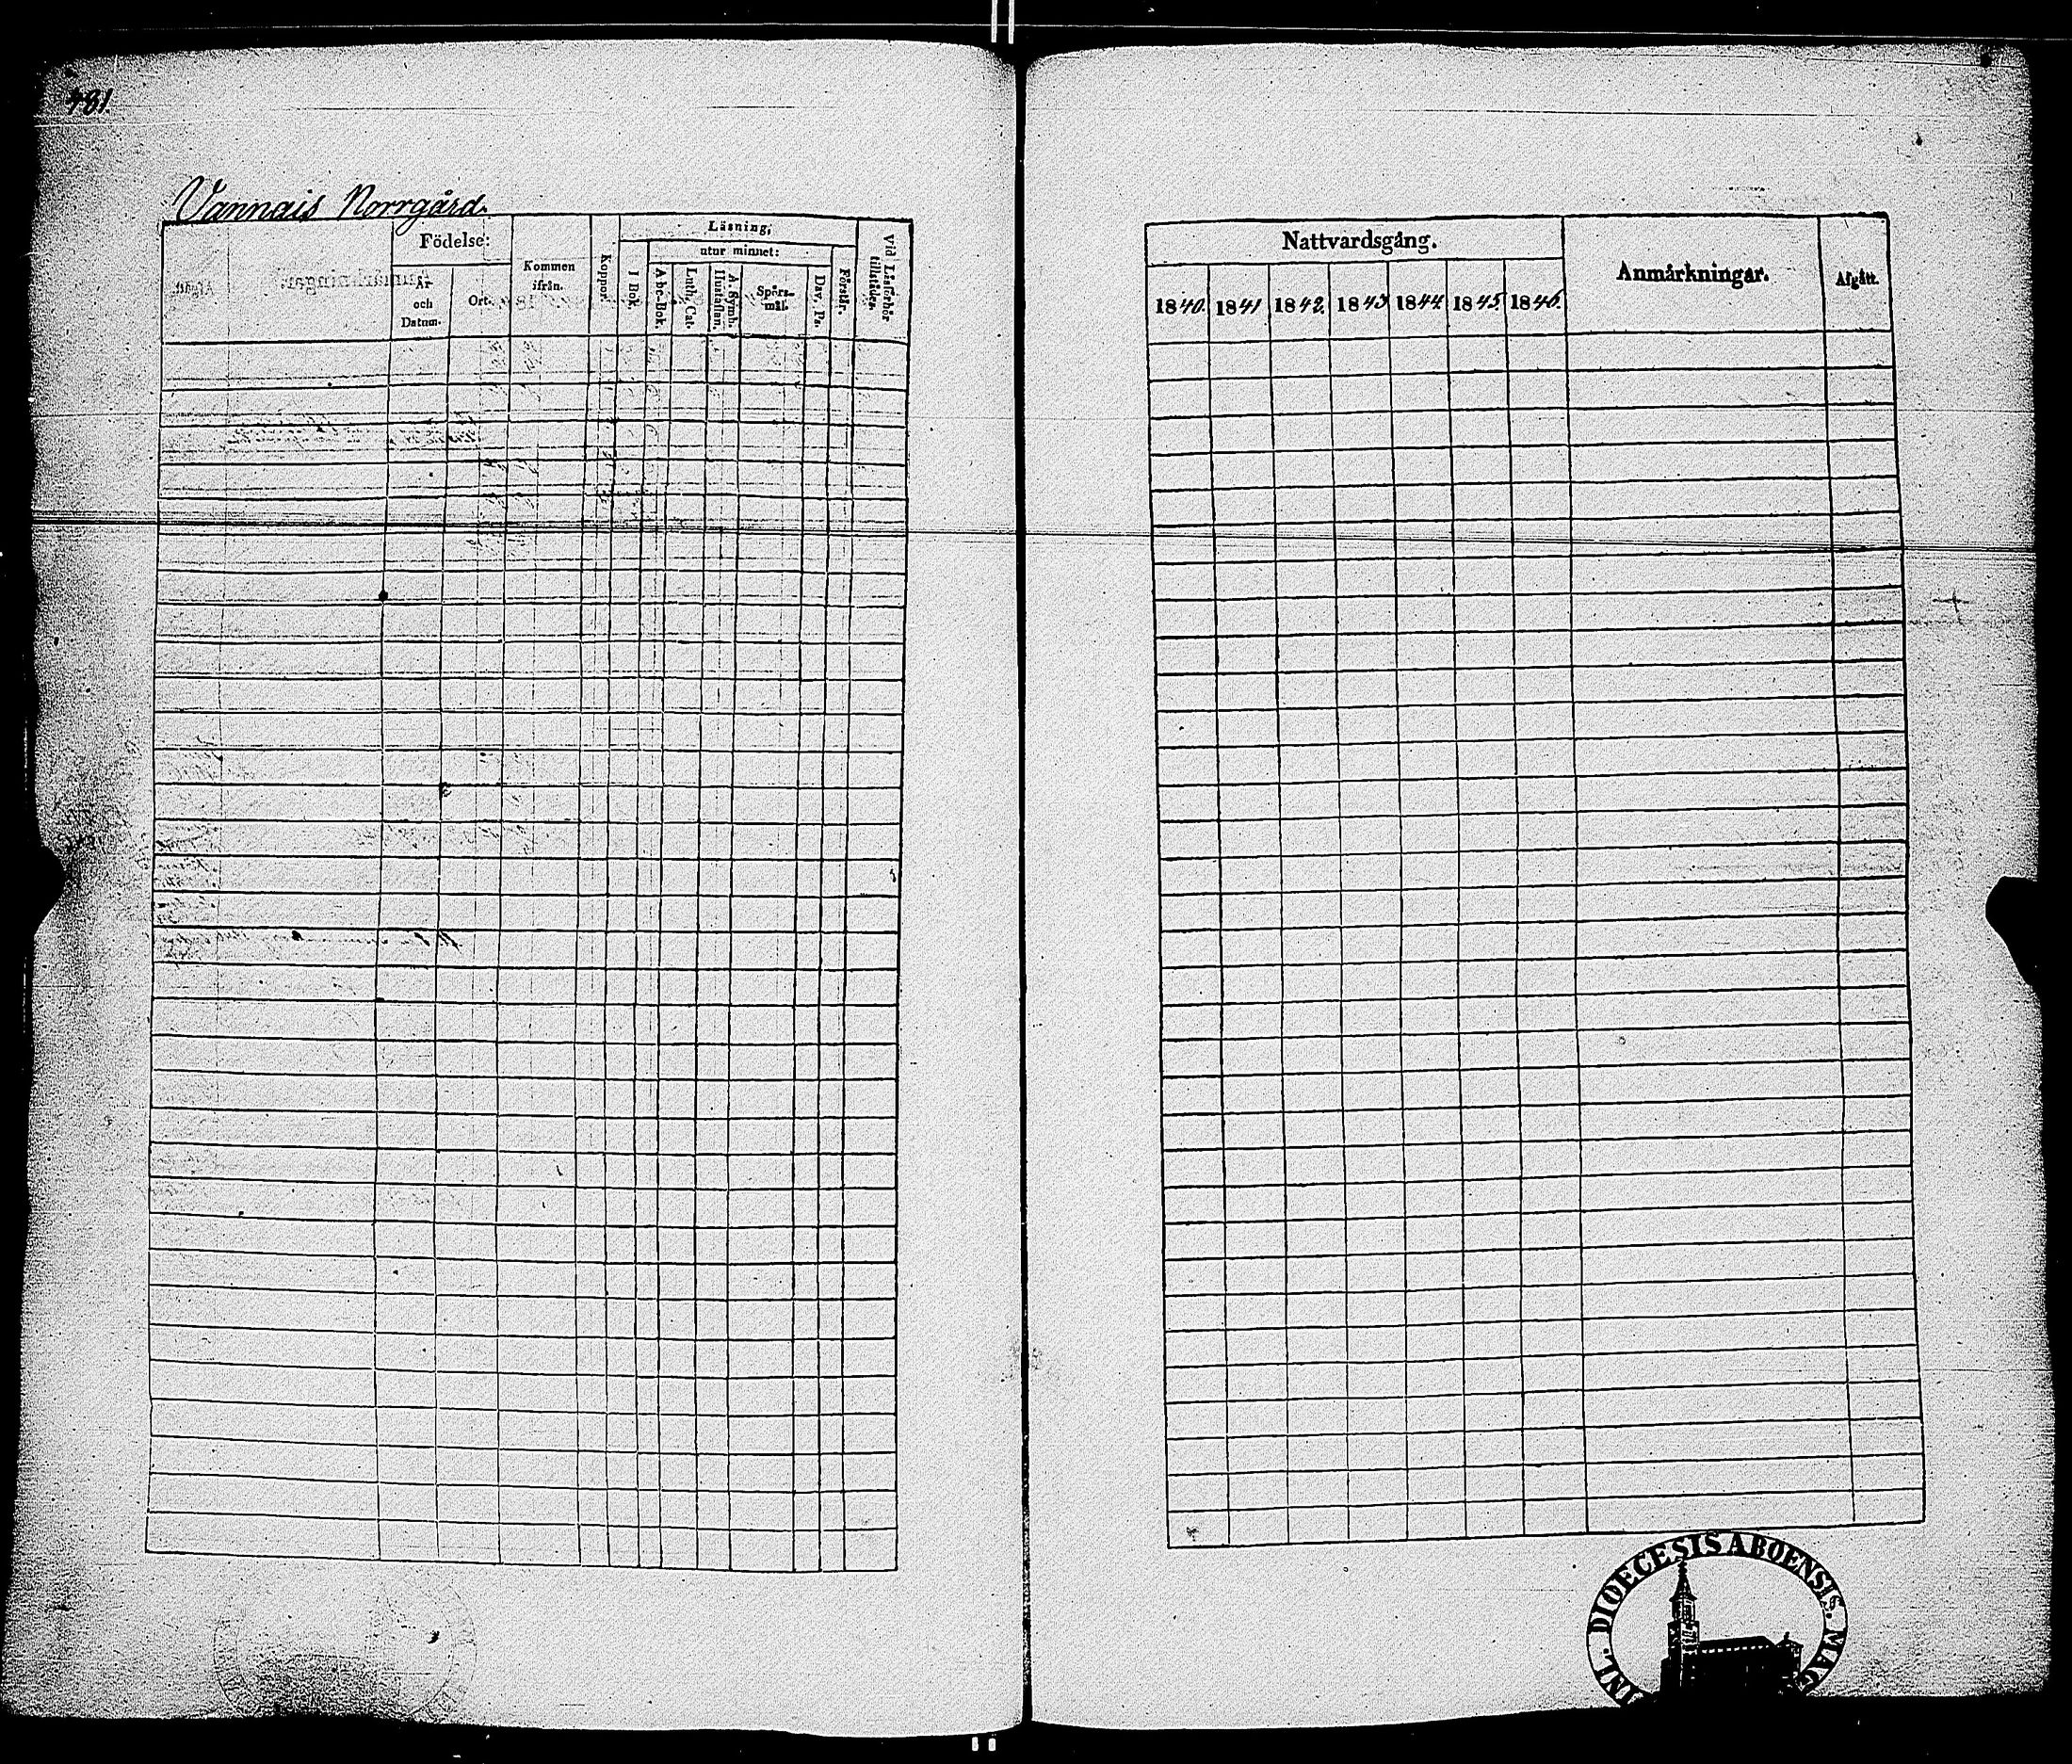 481.
Vannais Norrgård.
Födelse:
År och Datum.
Ort.
Kommen ifrån.
Koppor.
Läsning,
I Bok.
utur minnet:
Abc-Bok.
Luth. Cat.
A. Symb. Hustaflan.
Spörsmål.
Dav. Ps.
Förstår.
Vid Läsförhör tillstädes.
Nattvardsgång.
1840. 1841 1842. 1843 1844 1845. 1846.
Anmärkningar.
Afgått.
DIOECESIS ABOENSIS. MAG